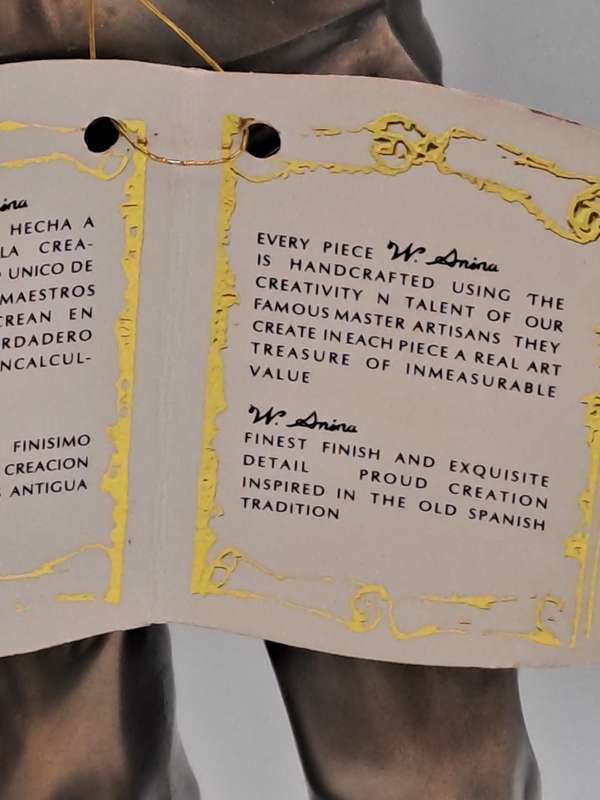 HECHA A
LA CREA-
UNICO DE
MAESTROS
CREAN EN
NCALCUL-
FINISIMO
CREACION
ANTIGUA
EVERY PIECE W. Anina
IS HANDCRAFTED USING THE
CREATIVITY N TALENT OF OUR
FAMOUS MASTER ARTISANS THEY
CREATE IN EACH PIECE A REAL ART
TREASURE OF INMEASURABLE
VALUE
W. Anina
FINEST FINISH AND EXQUISITE
DETAIL PROUD CREATION
INSPIRED IN THE OLD SPANISH
TRADITION